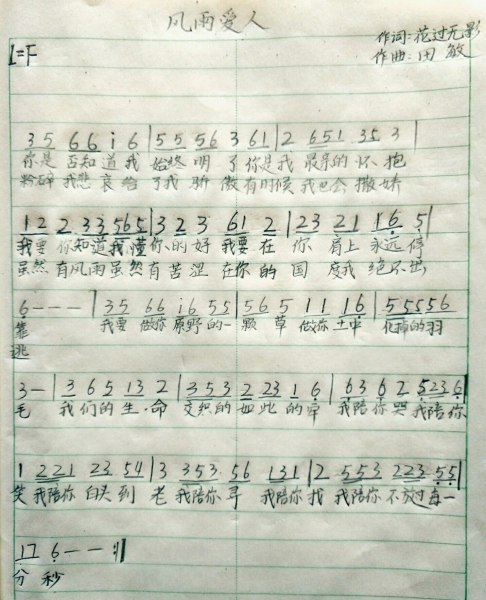 风雨爱人
作词:花过无影
作曲:田敏
1=F
35 66 i6|55 56 3 61|2 651 35 3|
你是否知道我 始终明了你是我 最亲的怀抱
粉碎我悲哀给了我骄傲有时候我也会撒娇
12 2 33 565|3 2 3 61 2|23 21 16 5|
我要你知道我懂你的好我要在你肩上永远停
虽然有风雨虽然有苦涩在你的国度我绝不出
6---|35 66 i6 55|56 5 11 16|55556
靠 我要做你原野的一颗草做你土中化掉的羽
逃
3-|3 6 5 13 2|353 2 231 6|63 62 5236|
毛 我们的生命交织的如此的牢 我陪你哭我陪你
1 221 23 54|3 353 56 131|2 553 223 55|
笑我陪你白头到老我陪你寻 我陪你找我陪你不放过每一
17 6--:||
分秒